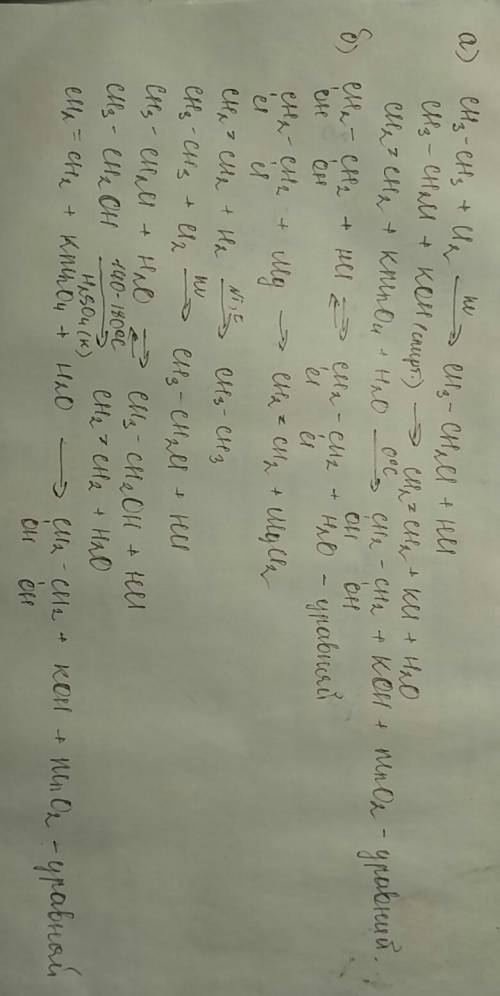 а) CH3-CH3 + Cl2 hν→ CH3-CH2Cl + HCl
CH3-CH2Cl + KOH (спирт.) → CH2=CH2 + KCl + H2O
CH2=CH2 + KMnO4 + H2O 0°C→ CH2-CH2 + KOH + MnO2 - уравний.
OH OH
б) CH2-CH2 + HCl ⇄ CH2-CH2 + H2O - уравняй
OH OH Cl Cl
CH2-CH2 + Mg → CH2=CH2 + MgCl2
Cl Cl
CH2=CH2 + H2 Ni, t→ CH3-CH3
CH3-CH3 + Cl2 hν→ CH3-CH2Cl + HCl
CH3-CH2Cl + H2O ⇄ CH3-CH2OH + HCl
CH3-CH2OH 140-180°C→ H2SO4(к) CH2=CH2 + H2O
CH2=CH2 + KMnO4 + H2O → CH2-CH2 + KOH + MnO2 - уравняй
OH OH